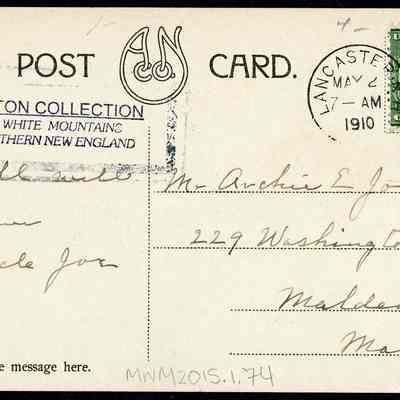 POST CARD.
A N Co.
LANCASTER
MAY 2
7-AM
1910
TON COLLECTION
WHITE MOUNTAINS
THERN NEW ENGLAND
ll well
Mr Archie E Jo
229 Washingt
cle Joe
Malde
Ma
e message here.
MWM2015.1.74